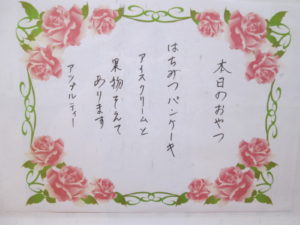 本日のおやつ
はちみつパンケーキ
アイスクリームと
果物そえて
あります
アップルティー